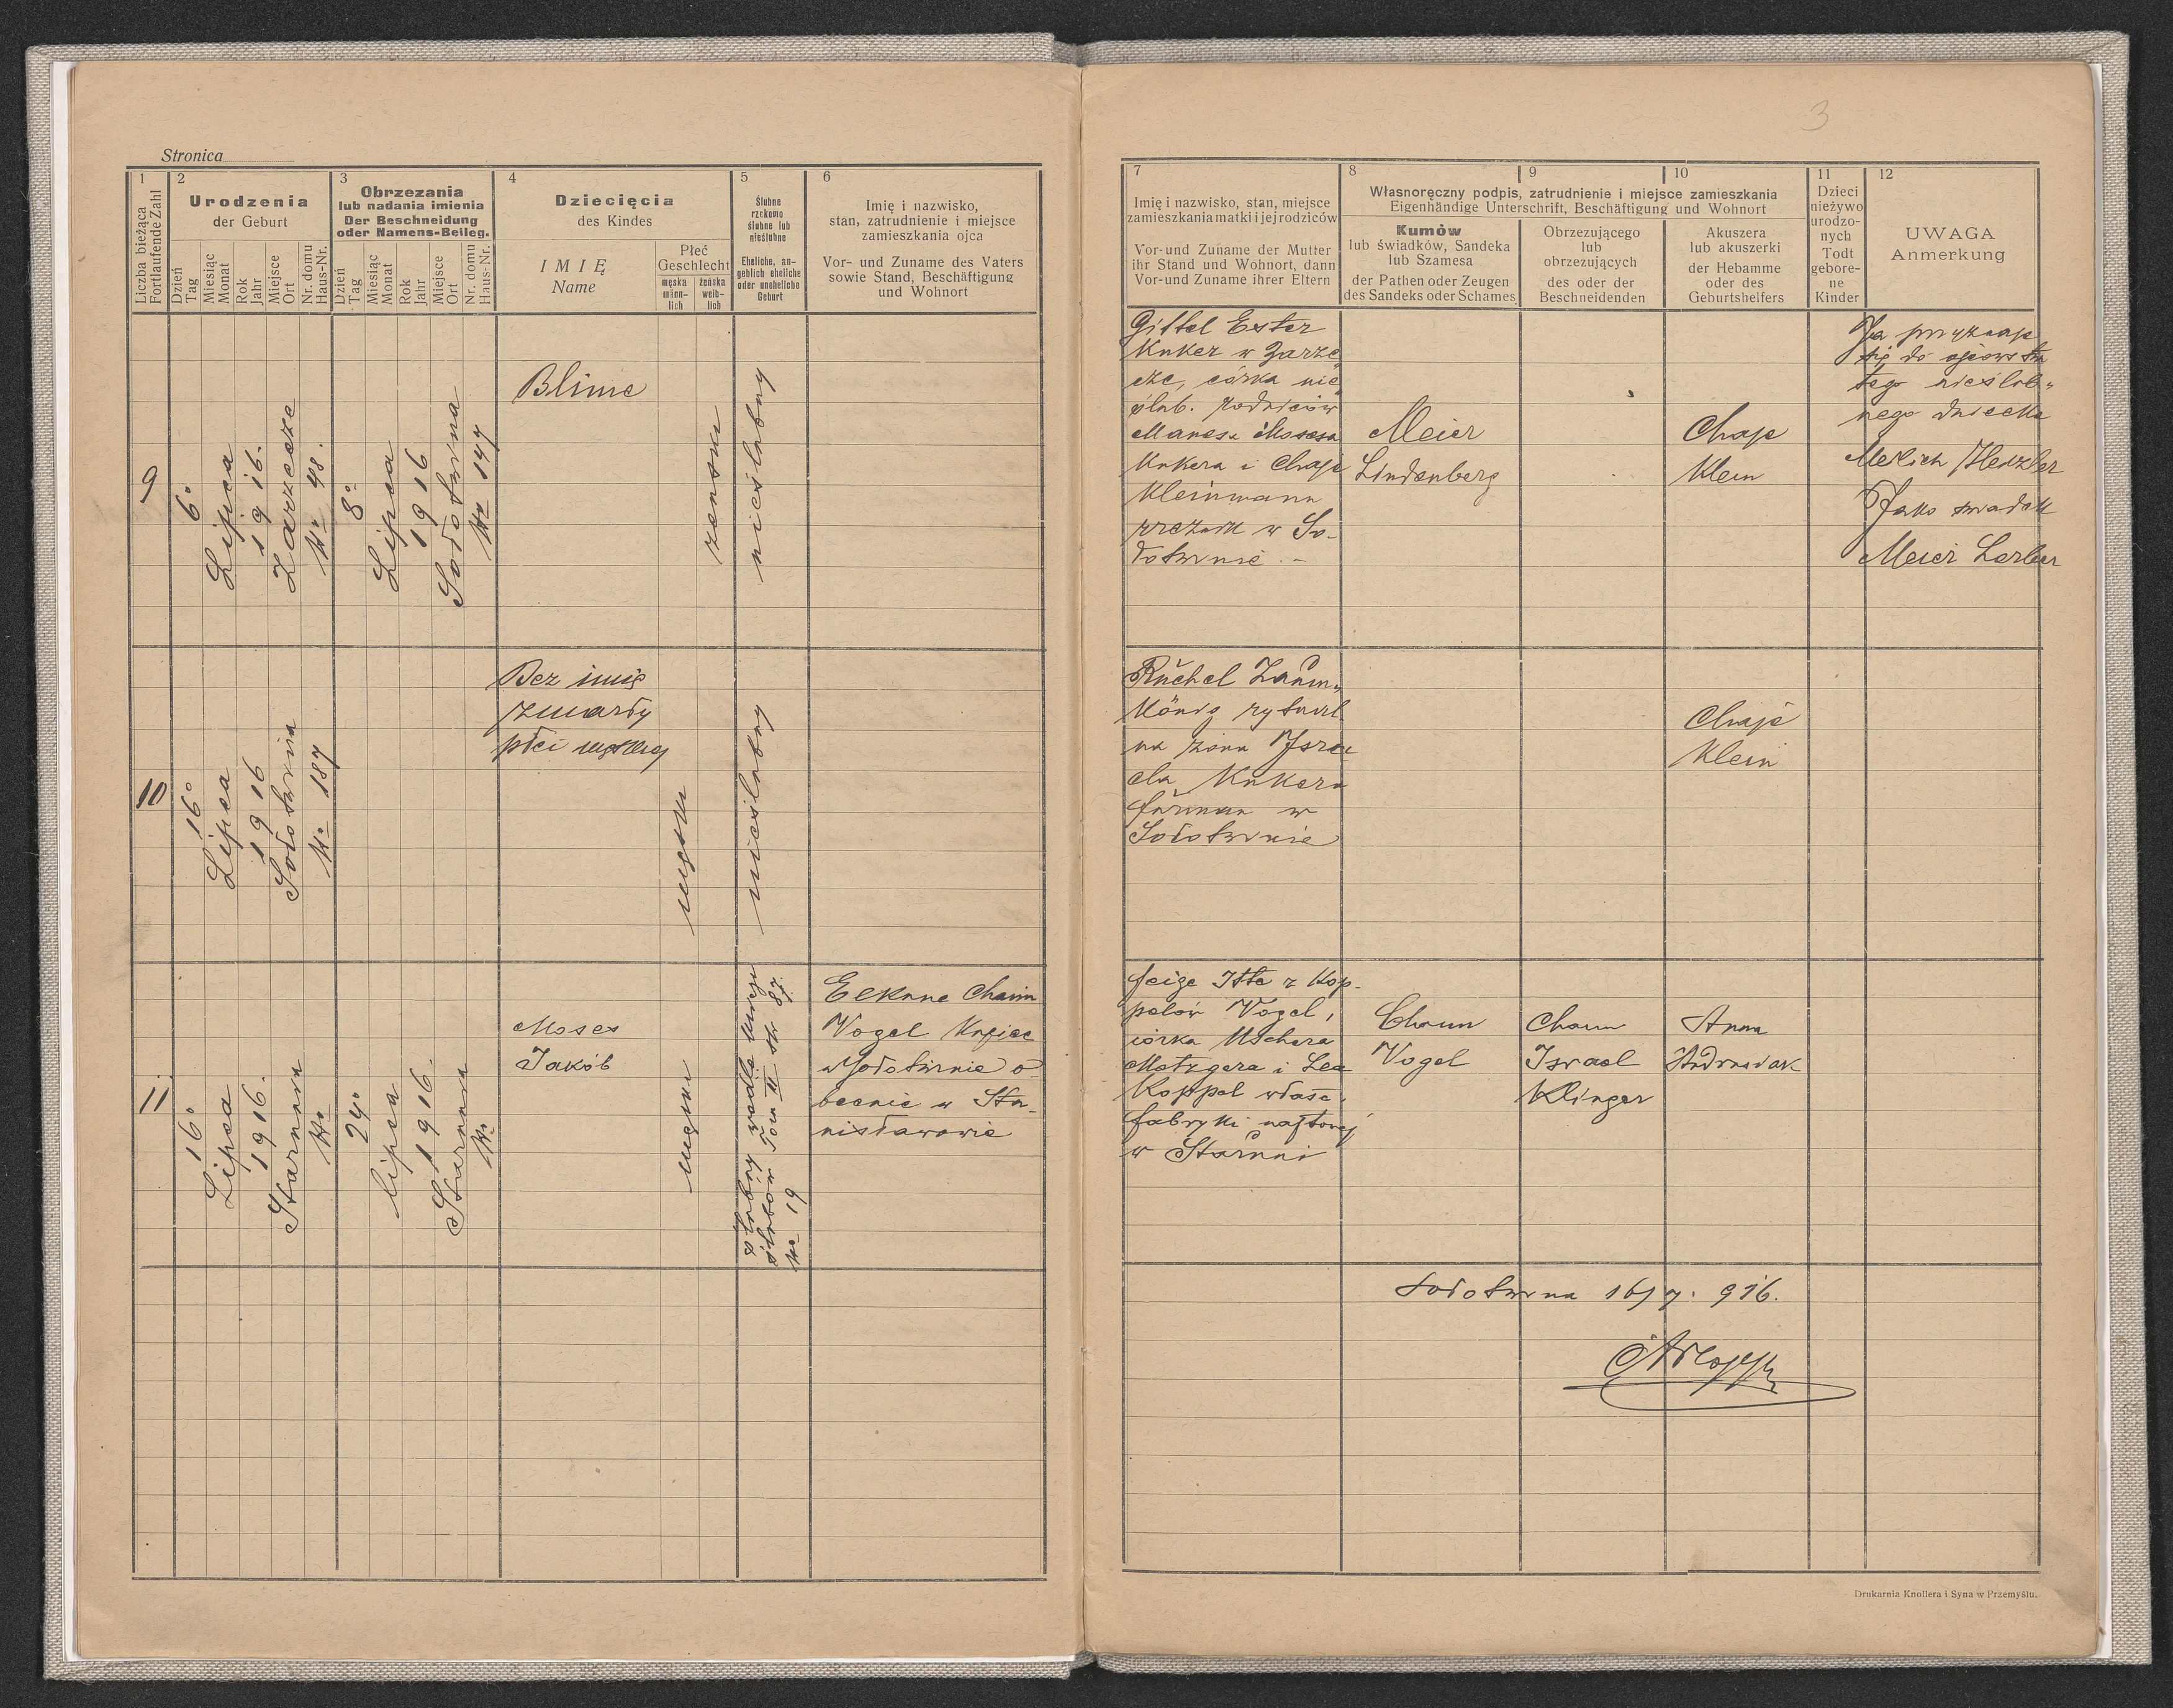 Stronica
1
Liczba bieżąca
Fortlaufende Zahl
2
Urodzenia
der Geburt
Dzień
Tag
Miesiąc
Monat
Rok
Jahr
Miejsce
Ort
Nr. domu
Haus-Nr.
3
Obrzezania
lub nadania imienia
Der Beschneidung
oder Namens-Beileg.
Dzień
Tag
Miesiąc
Monat
Rok
Jahr
Miejsce
Ort
Nr. domu
Haus-Nr.
4
Dziecięcia
des Kindes
IMIĘ
Name
Płeć
Geschlecht
męska
männ-
lich
żeńska
weib-
lich
5
Ślubne
rzekomo
ślubne lub
nieślubne
Eheliche, an-
geblich eheliche
oder uneheliche
Geburt
6
Imię i nazwisko,
stan, zatrudnienie i miejsce
zamieszkania ojca
Vor- und Zuname des Vaters
sowie Stand, Beschäftigung
und Wohnort
9
6º
Lipica
1916.
Zarzecze
Nº 48.
8º
Lipca
1916
Sołotwina
Nr 147
Blime
żenski
nieslubny
10
16º
Lipca
1916
Sołotwina
Nº 187
Bez imię
zmarły
płci męskiej
męski
nieslubny
11
16º
Lipca
1916.
Starunia
Nº
24º
lipca
1916.
Starunia
Nº
Moses
Jakób
męski
ślubny wedle
ślubów Tom III str 87.
Nº 19
Elkune Chaim
Vogel Kupiec
w Sołotwinie o-
becnie w Sta-
nisławowie
3
7
Imię i nazwisko, stan, miejsce
zamieszkania matki i jej rodziców
Vor-und Zuname der Mutter
ihr Stand und Wohnort, dann
Vor-und Zuname ihrer Eltern
8
9
10
Własnoręczny podpis, zatrudnienie i miejsce zamieszkania
Eigenhändige Unterschrift, Beschäftigung und Wohnort
Kumów
lub świadków, Sandeka
lub Szamesa
der Pathen oder Zeugen
des Sandeks oder Schames
Obrzezującego
lub
obrzezujących
des oder der
Beschneidenden
Akuszera
lub akuszerki
der Hebamme
oder des
Geburtshelfers
11
Dzieci
nieżywo
urodzo-
nych
Todt
gebore-
ne
Kinder
12
UWAGA
Anmerkung
Gittel Ester
Kuker w Zarze
cze, córka nie
ślub. rodziców
Manesa Mosesa
Kukera i Chaje
Kleinmann
w So-
łotwinie. –
Meier
Lindenberg
Chaje
Klein
Ja przyznaje
się do ojcowstwa
tego nieślub-
nego dziecka
Meilich Herzler
Jako swadek
Meier Lerber
Ruchel Zaum-
König rytual
na żona Isra
ela Kukera
furman w
Sołotwinie
Chaje
Klein
Feige Itte z Kop-
pelów Vogel,
córka Uschera
Metzgera i Lea
Koppel właśc.
fabryki naftowej
w Staruni
Chaim
Vogel
Chaim
Israel
Klinger
Anna
Sołotwina 16/7. 916.
Drukarnia Knollera i Syna w Przemyślu.